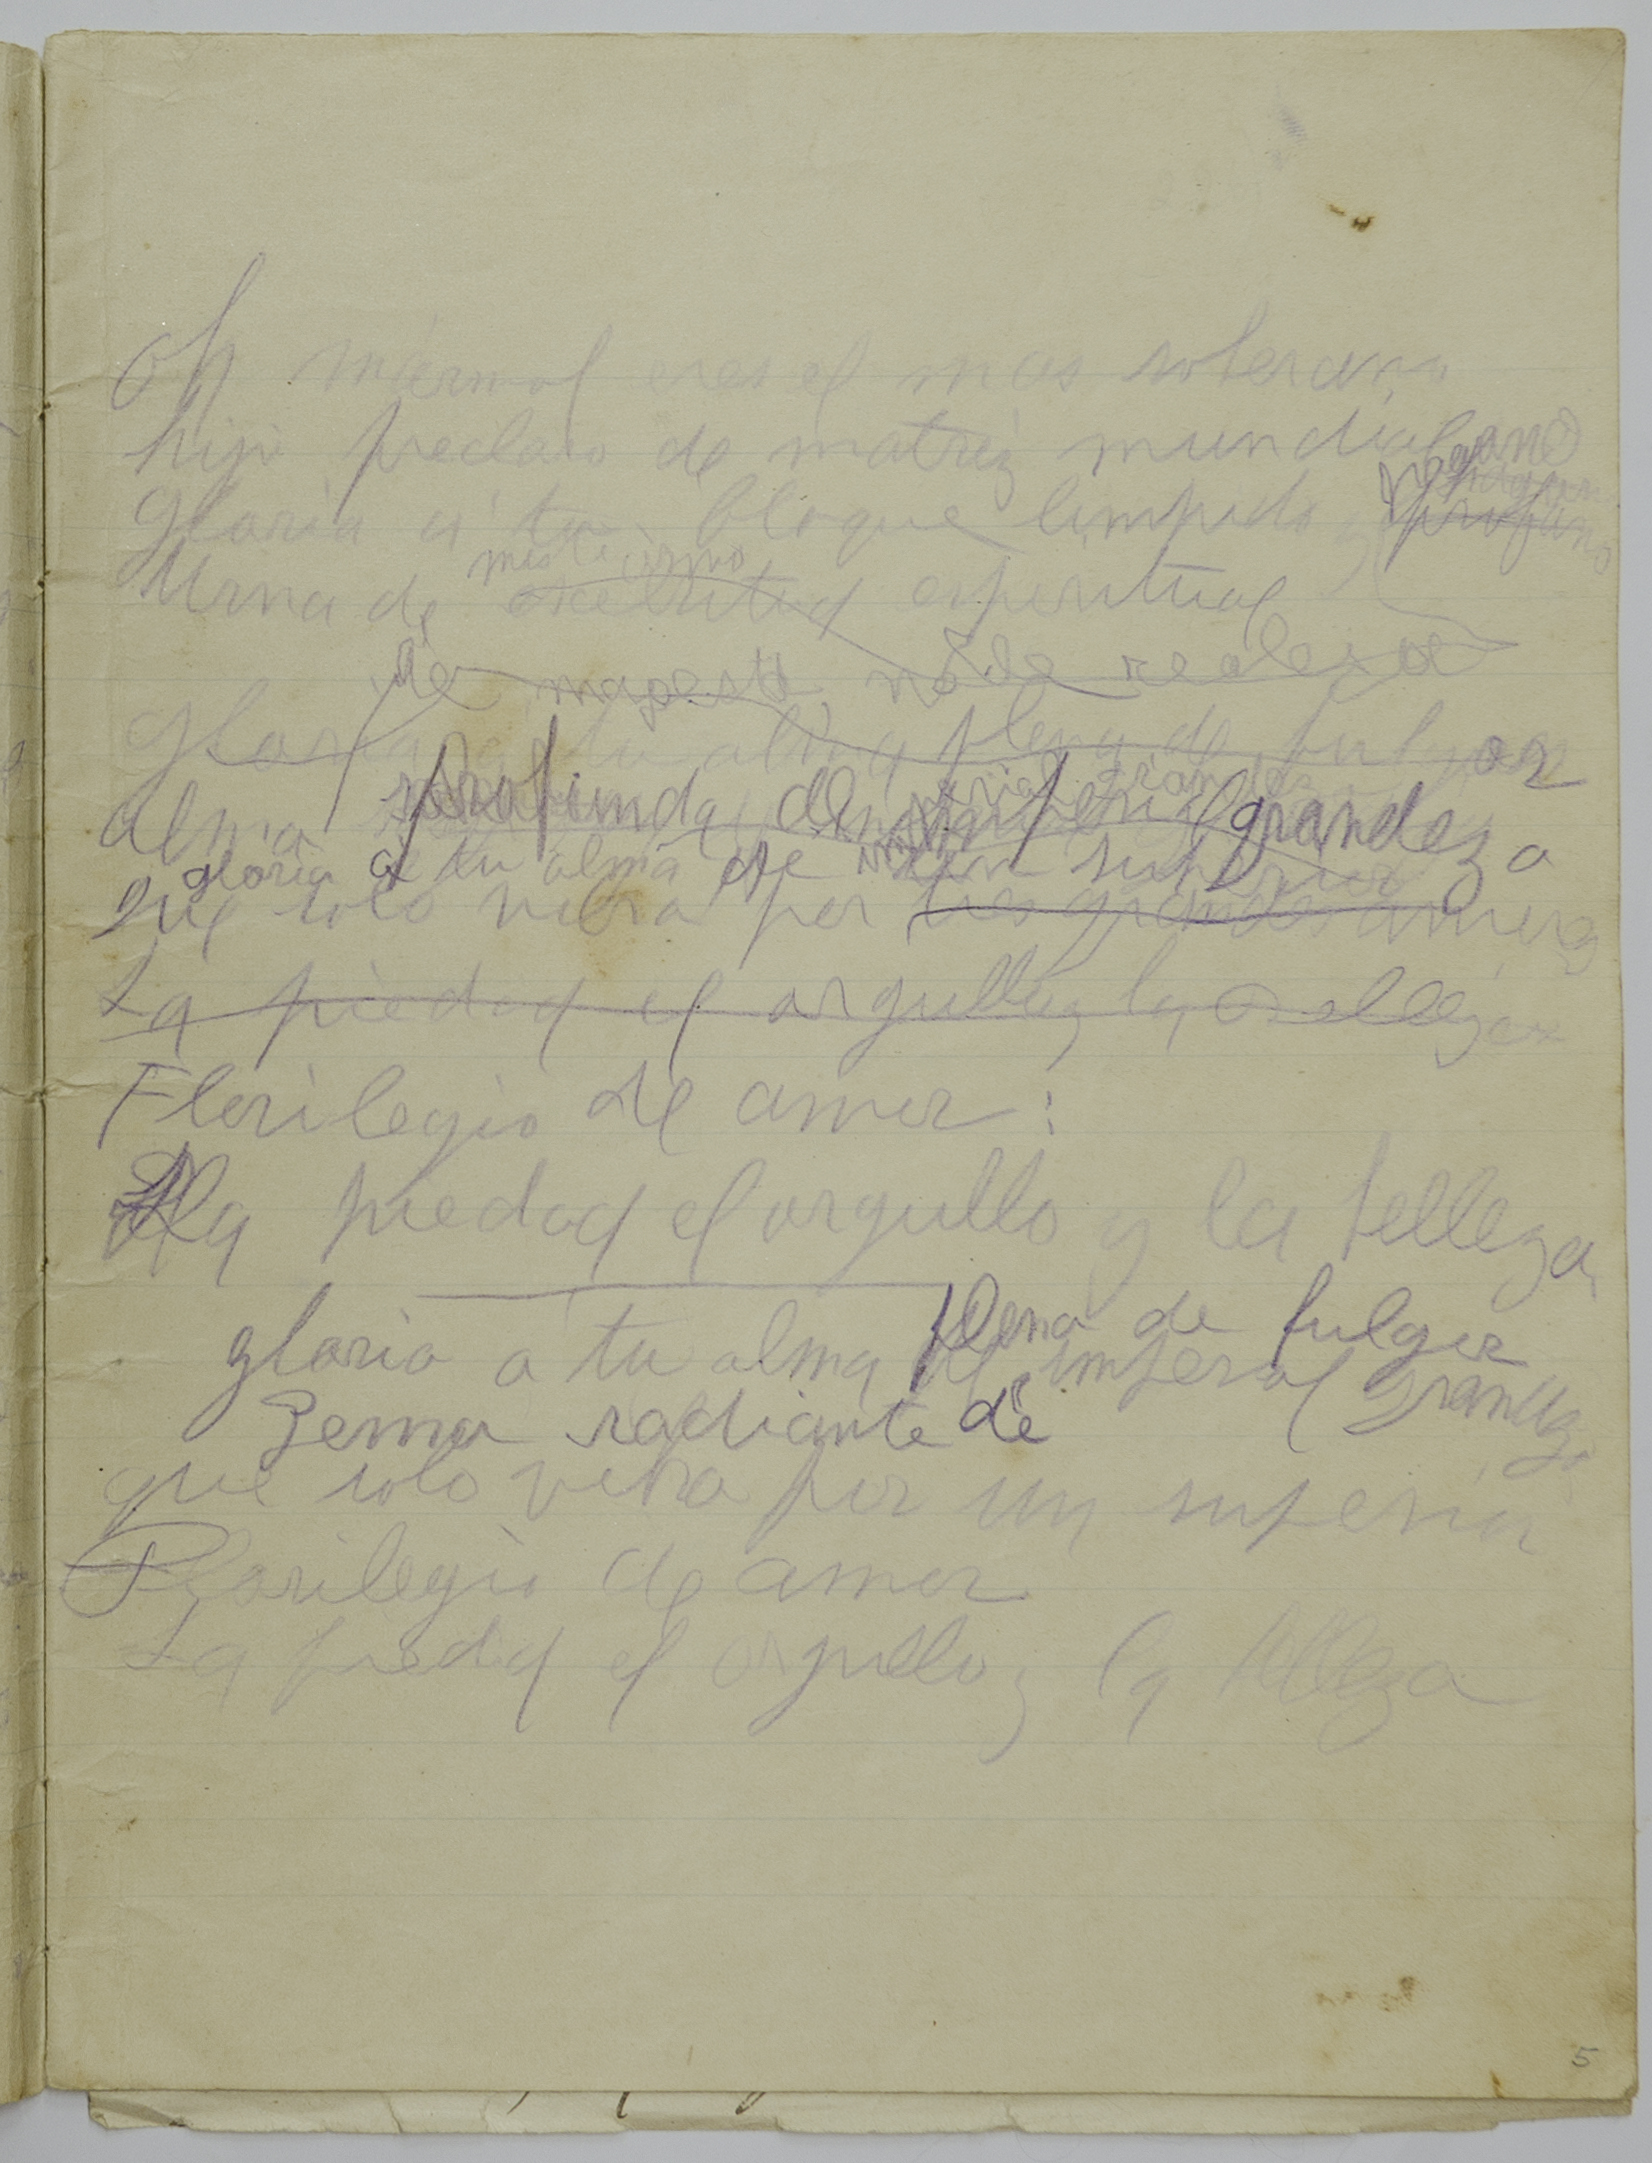 Oh mármol eres el mas soberano
hijo preclaro de matriz mundial
Gloria a tu bloque limpido
profano
misticismo
Urna de excelsitud espiritual
de majest no de realeza
Gloria a tu alma plena de fulgor
alma profunda de imperial grandeza
gloria a tu alma de un superior
que solo vibra por tres grandes amores
La piedad el orgullo y la belleza
Florilegio de amor:
La piedad el orgullo y la belleza
plena de fulgor
gloria a tu alma de imperial grandeza
Gema radiante de
que solo vibra por un superior
Florilegio de amor
La piedad el orgullo y la belleza
5